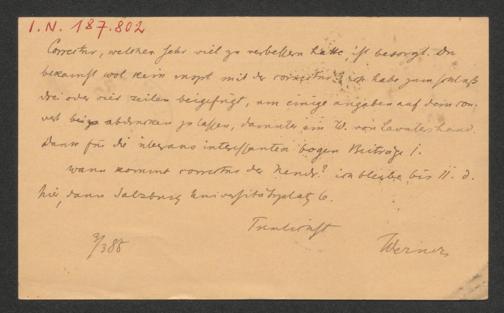 I.N. 187.802
Correctur, welche sehr viel zu verbessern hatte, ist besorgt. Du
bekomst wol kein mspt mit der correctur? ich habe zum schluss
drei oder vier zeilen beigefügt, um einige angaben auf dem con-
vert abdrucken zu lassen, darunter ein W. von Lavaters hand.
Dank für die überaus interessanten bogen Beiträge!
wann kommt correctur der ? ich bleibe bis 11. d.
hie, dann Salzburg Universitätsplatz 6.
Treulichst
Werner
9/3 88